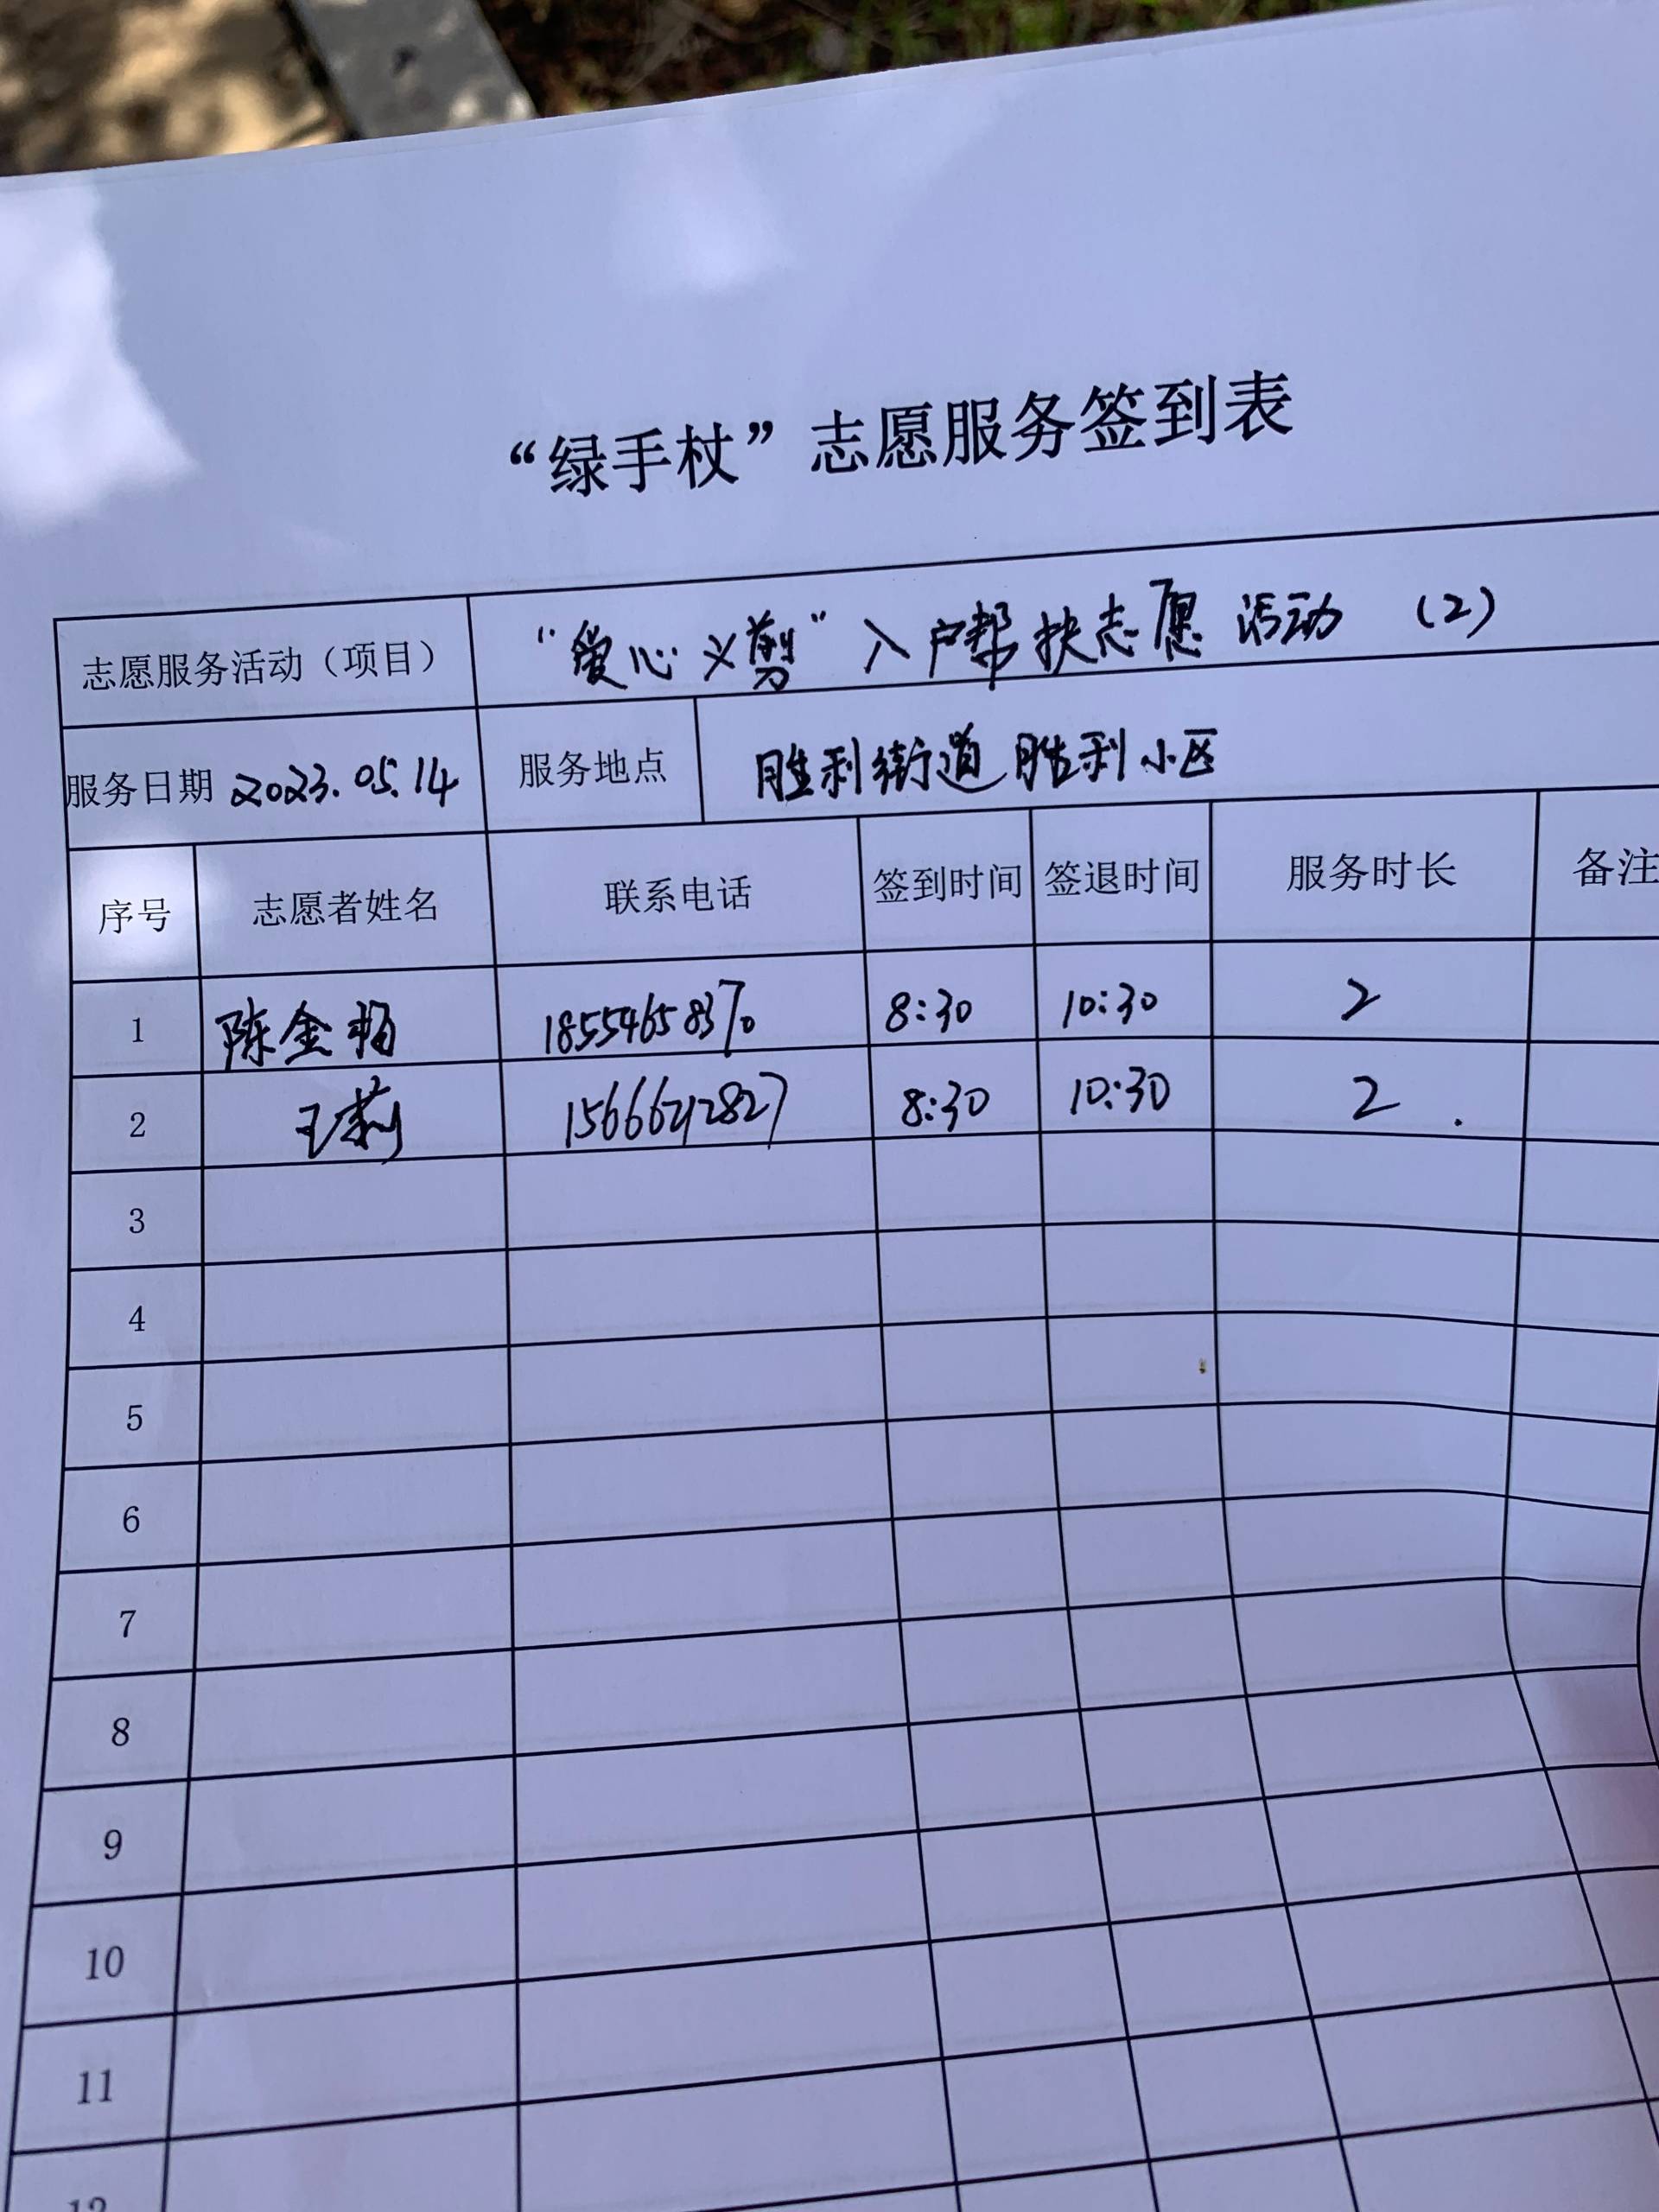 “绿手杖”志愿服务签到表
志愿服务活动（项目） “爱心义剪”入户帮扶志愿活动（2）
服务日期 2023.05.14 服务地点 胜利街道胜利小区
序号 志愿者姓名 联系电话 签到时间 签退时间 服务时长 备注
1 陈金 18554658370 8:30 10:30 2
2 王莉 15666212827 8:30 10:30 2
3
4
5
6
7
8
9
10
11
12